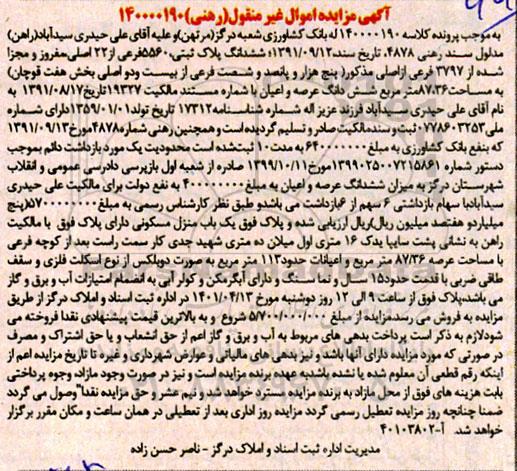 آگهی مزایده اموال غیر منقول(رهنی)۱۴۰۰۰۰۱۹۰
به موجب پرونده کلاسه ۱۴۰۰۰۰۱۹۰ له بانک کشاورزی شعبه درگز(مرتهن)و علیه آقای علی حیدری سیدآباد(راهن)
مدلول سند رهنی ۴۸۷۸، تاریخ سند:۱۳۹۱/۰۹/۱۲؛ ششدانگ پلاک ثبتی۵۵۶۰فرعی از۲۲ اصلی،مفروز و مجزا
شده از ۳۷۹۷ فرعی ازاصلی مذکور( پنج هزار و پانصد و شصت فرعی از بیست ودو اصلی بخش هفت قوچان)
به مساحت۸۷،۳۶متر مربع شش دانگ عرصه و اعیان با شماره مستند مالکیت ۱۹۳۲۷تاریخ۱۳۹۱/۰۸/۱۷ به
نام آقای علی حیدری سیدآباد فرزند عزیز اله شماره شناسنامه۱۷۳۱۲ تاریخ تولد۱۳۵۹/۰۱/۰۱ دارای شماره
ملی۰۷۷۸۶۰۳۲۵۳ثبت و سندمالکیت صادر و تسلیم گردیده است و همچنین رهنی شماره۴۸۷۸مورخ۱۳۹۱/۰۹/۱۳
که بنفع بانک کشاورزی به مبلغ۶۴۰۰۰۰۰۰۰ به مدت ۱۰ثبت شده است محدودیت یک مورد بازداشت دائم بموجب
دستور شماره ۱۳۹۹۰۲۵۰۰۷۲۱۵۸۶۱مورخ۱۳۹۹/۱۰/۱۱ صادره از شعبه اول بازپرسی دادرسی عمومی و انقلاب
شهرستان درگز به میزان ششدانگ عرصه و اعیان به مبلغ۴۰۰۰۰۰۰۰۰ به نفع دولت برای مالکیت علی حیدری
سیدآبادبا سهام بازداشتی ۶ سهم از ۶بازداشت می باشدو طبق نظر کارشناس رسمی به مبلغ۵۷۰۰۰۰۰۰۰۰(پنج
میلیاردو هفتصد میلیون ریال)ریال ارزیابی شده و پلاک فوق یک باب منزل مسکونی دارای پلاک فوق با مالکیت
راهن به نشانی پشت سایپا یدک ۱۶ متری اول میلان ده متری شهید جدی کار سمت راست بعد از کوچه فرعی
با مساحت عرصه ۸۷/۳۶ متر مربع و اعیانات حدود۱۱۳ متر مربع به صورت دوبلکس از نوع اسکلت فلزی و سقف
طاقی ضربی با قدمت حدود۱۵ سال و نما سنگ و دارای آبگرمکن و کولر آبی به انضمام امتیازات آب و برق و گاز
می باشد،پلاک فوق از ساعت ۹ الی ۱۲ روز دوشنبه مورخ ۱۴۰۱/۰۴/۱۳ در اداره ثبت اسناد و املاک درگز از طریق
مزایده به فروش می رسد،مزایده از مبلغ ۵/۷۰۰/۰۰۰/۰۰۰ شروع و به بالاترین قیمت پیشنهادی نقدا فروخته می
شودلازم به ذکر است پرداخت بدهی های مربوط به آب و برق و گاز اعم از حق انشعاب و یا حق اشتراک و مصرف
در صورتی که مورد مزایده دارای آنها باشد و نیز بدهی های مالیاتی و عوارض شهرداری و غیره تا تاریخ مزایده اعم از
اینکه رقم قطعی آن معلوم شده یا نشده باشدبه عهده برنده مزایده است و نیز در صورت وجود مازاد، وجوه پرداختی
بابت هزینه های فوق از محل مازاد به برنده مزایده مسترد خواهد شد و نیم عشر و حق مزایده نقدا"وصول می گردد
ضمنا چنانچه روز مزایده تعطیل رسمی گردد مزایده روز اداری بعد از تعطیلی در همان ساعت و مکان مقرر برگزار
خواهد شد. آ-۴۰۱۰۳۸۰۲
مدیریت اداره ثبت اسناد و املاک درگز - ناصر حسن زاده